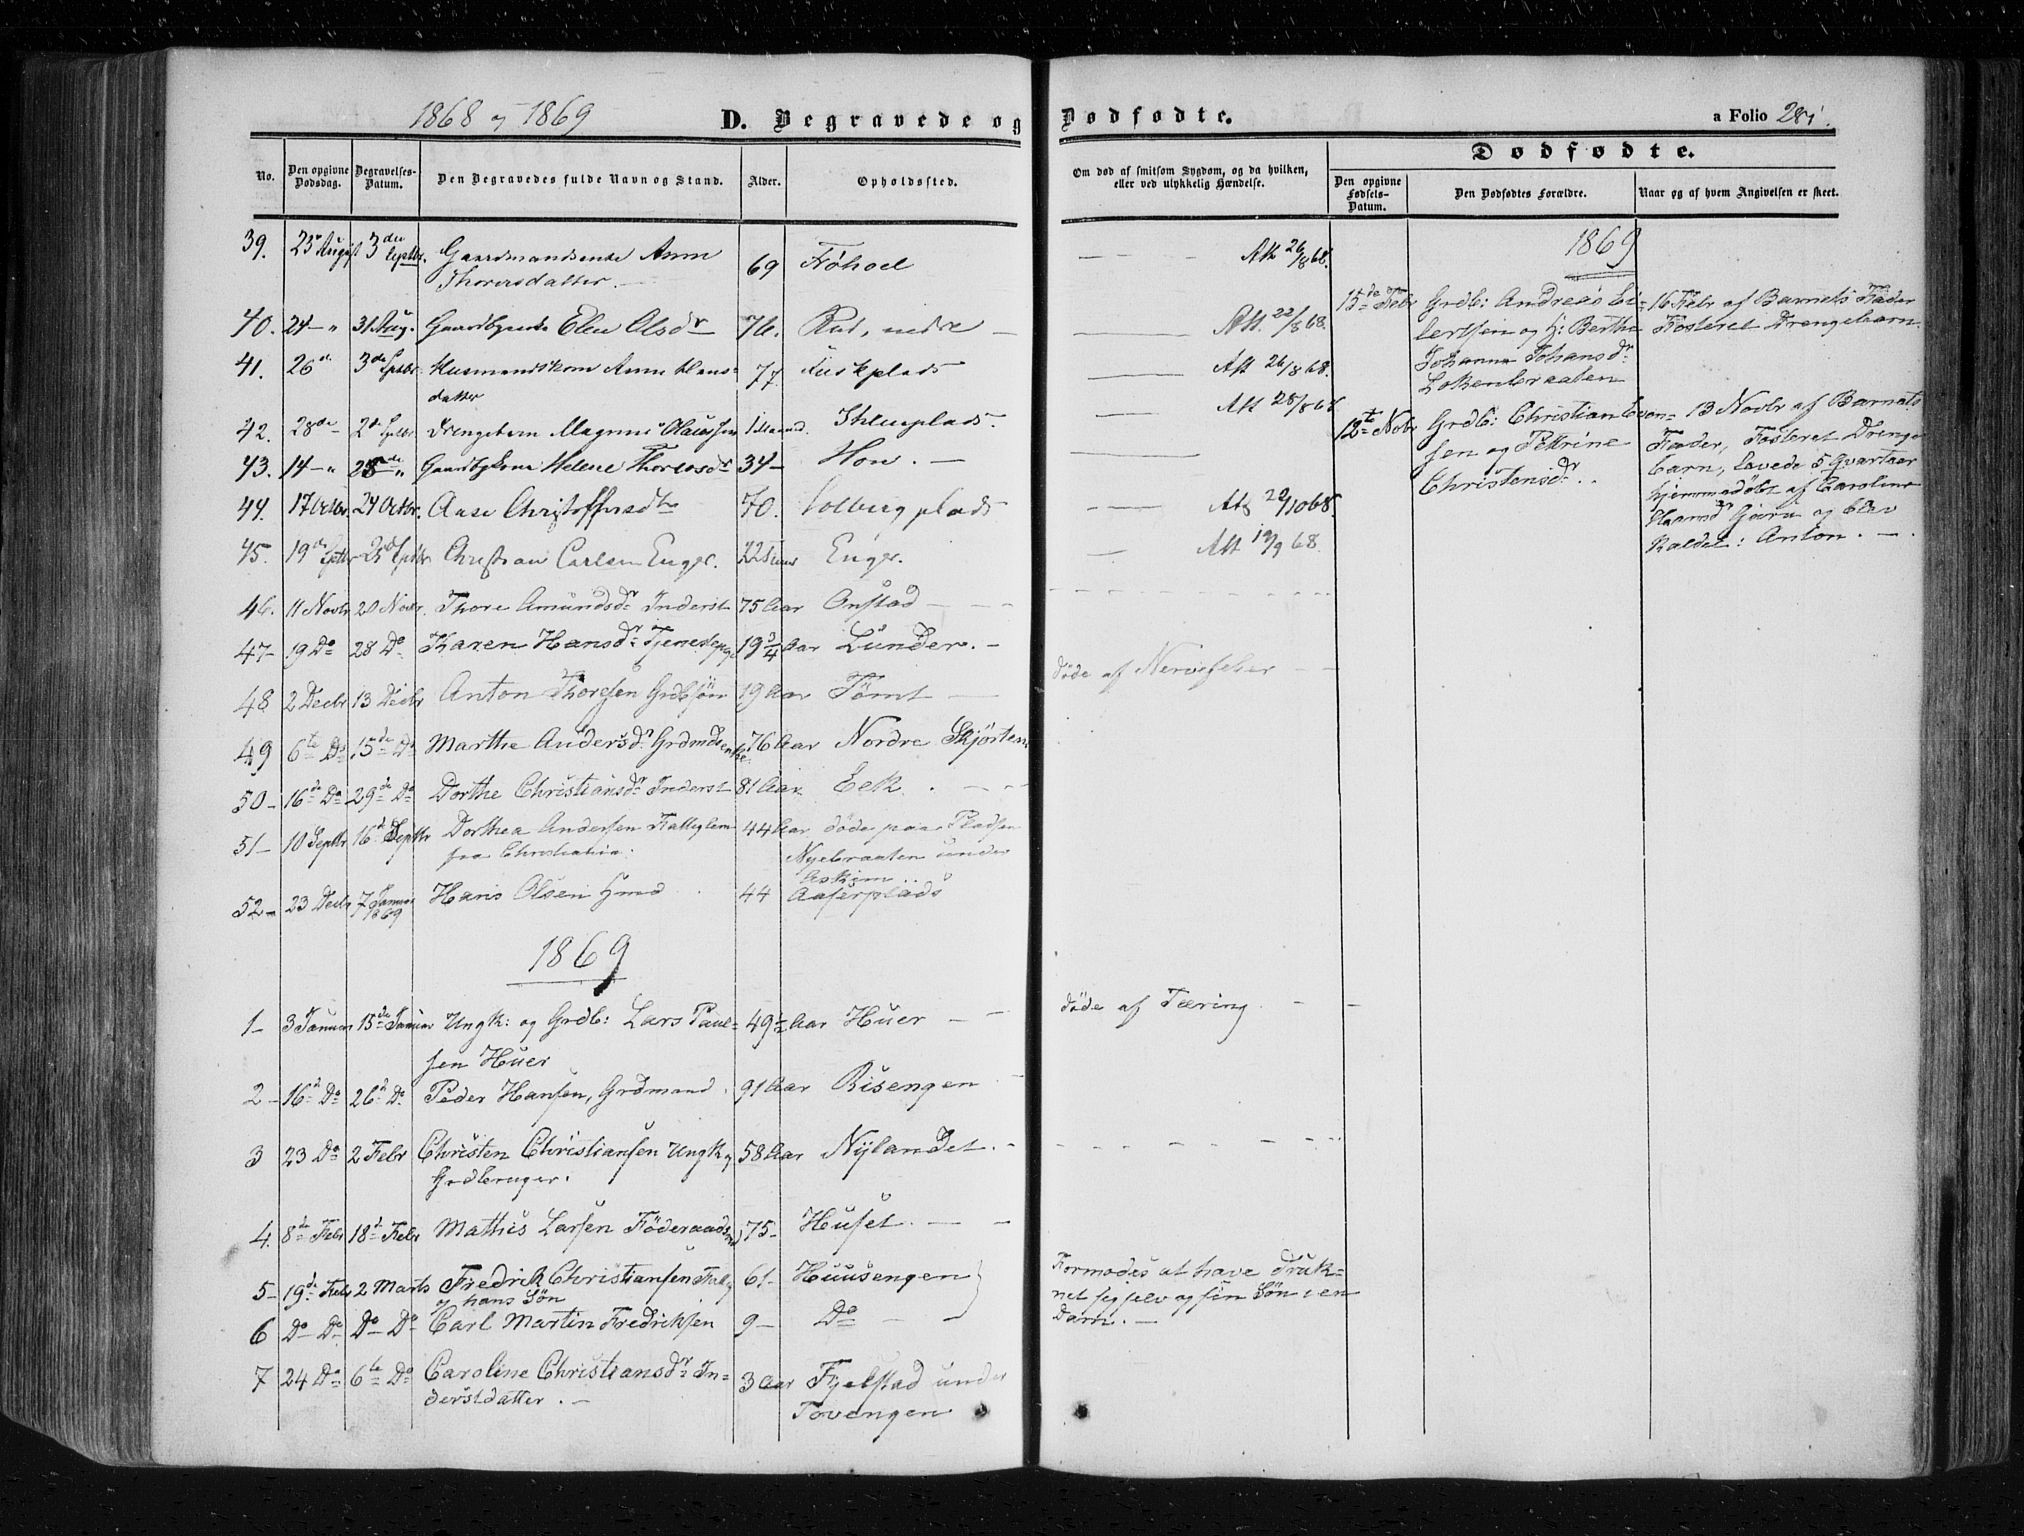 1868 og 1869 D. Begravede og Dødfødte. a Folio 281.
No. Den opgivne Dødsdag. Begravelses-Datum. Den Begravedes fulde Navn og Stand. Alder. Opholdssted. Om død af smitsom Sygdom, og da hvilken, eller ved ulykkelig Hændelse.
Dødfødte.
Den opgivne Fødsels-Datum. Den Dødfødtes Forældre. Naar og af hvem Angivelsen er skeet.
39. 23 August 3die Septbr. Gaardmandsenke Anne 69 Frøhoel Att 26/8 68.
Thoresdatter.
40. 24 — " 31 Aug. Elen Olsdr 76. Rud, nedre — Att. 22/8 68.
41. 26de 3de Septbr. Husmandskone Anne Hans- 77 plads Att 26/8 68.
datter
42. 28de 2de Septbr Drengebarn Magnus Olaussen 1 Maaned. Att 28/8 68
43. 14 — " 28de " Helene Thoresdr 34 — Hov. —
44. 17 Octbr. 24 Octbr. Aase Christoffersdtr 70. Solberg plads Att 20/10 68.
45. 19de Septbr 25de Septbr Christian Carlsen Enger. 22 Enger. Att 19/9 68.
46. 11 Novbr 20 Novbr. Thore Amundsdr Inderst 75 Aar Onstad — —
47 — 19 Do 28 Do Karen Hansdr Tjenestepige 19 3/4 Aar Lunder. — døde af Nervefeber — —
48 2 Decbr 13 Decbr Anton Thoresen Grdbsøn 19 Aar Tømt —
49 6te Do 15de Do Marthe Andersdr Grdmdsenke 76 Aar Nordre Skjørten
50 — 16de Do 29de Do Dorthe Christiansdr Inderst 81 Aar Eek. — —
51 — 10 Septbr 16d Septbr Dorthea Andersen Fattiglem 44 Aar døde paa Pladsen
fra Christiania. Nyebraaten under
Askim..
52 — 23 Decbr 7 Januar 1869 Hans Olsen Hmd 44 Aaserplads
1869
1 — 3 Januar 15de Januar Ungk: og Grdb: Lars Paul= 49 1/2 Aar Huer — — døde af Tæring. — —
sen Huer
2 — 16d Do 26d Do Peder Hansen, Grdmand. 91 Aar Risengen
3 23 Do 2 Febr Christen Christiansen Ungk og 58 Aar Nylandet. —
Grdbruger.
4. 8de Febr 18d Febr Mathis Larsen Föderaadsmd 75 — Huset. — —
5 — 19de Febr 2 Marts Fredrik Christiansen 61 — Huusengen Formodes at have druk=
og hans Søn net sig selv og sin Søn i en
6 Do Do Do Do Carl Martin Fredriksen 9 — Do — — Dam. —
7 24 Do 6te Do Caroline Christiansdr In= 3 Aar Fjelstad under
derstdatter. — Tovengen
1869
15de Febr Grdb: Andreas Ei= 16 Febr af Barnets Fader
lertsen og H: Berthe Fosteret Drengebarn.
Johanne Johansdr
Løkenbraaten
12te Novbr Grdb: Christian Even= 13 Novbr af Barnets
sen og Pettrine Fader, Fosteret Drenge
Christensdr.. barn, levede 5 Qvarteer
hjemmedøbt af Caroline
og blev
kaldet: Anton. —